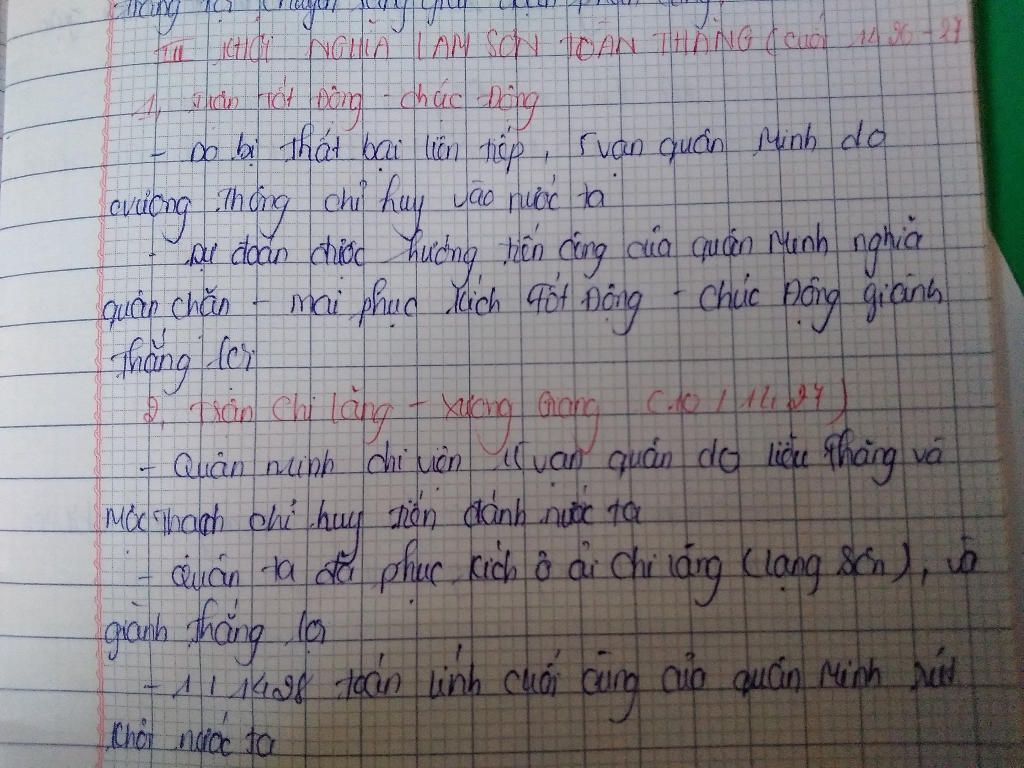 III KHỞI NGHĨA LAM SƠN TOÀN THẮNG (cuối 1426-27
1, Trận Tốt Động - Chúc Động
- Do bị thất bại liên tiếp, 5 vạn quân Minh do
vương Thông chỉ huy vào nước ta
- Dự đoán được hướng tiến công của quân Minh nghĩa
quân chặn - mai phục kích Tốt Động - Chúc Động giành
thắng lợi
2, Trận Chi Lăng - Xương Giang (10/1427)
- Quân Minh chi viện vạn quân do liễu Thăng và
Mộc Thạch chỉ huy tiến đánh nước ta
- Quân ta đã phục kích ở ải Chi lăng (lạng Sơn), và
giành thắng lợi
- 1/1428 toán lính cuối cùng của quân Minh rút
khỏi nước ta